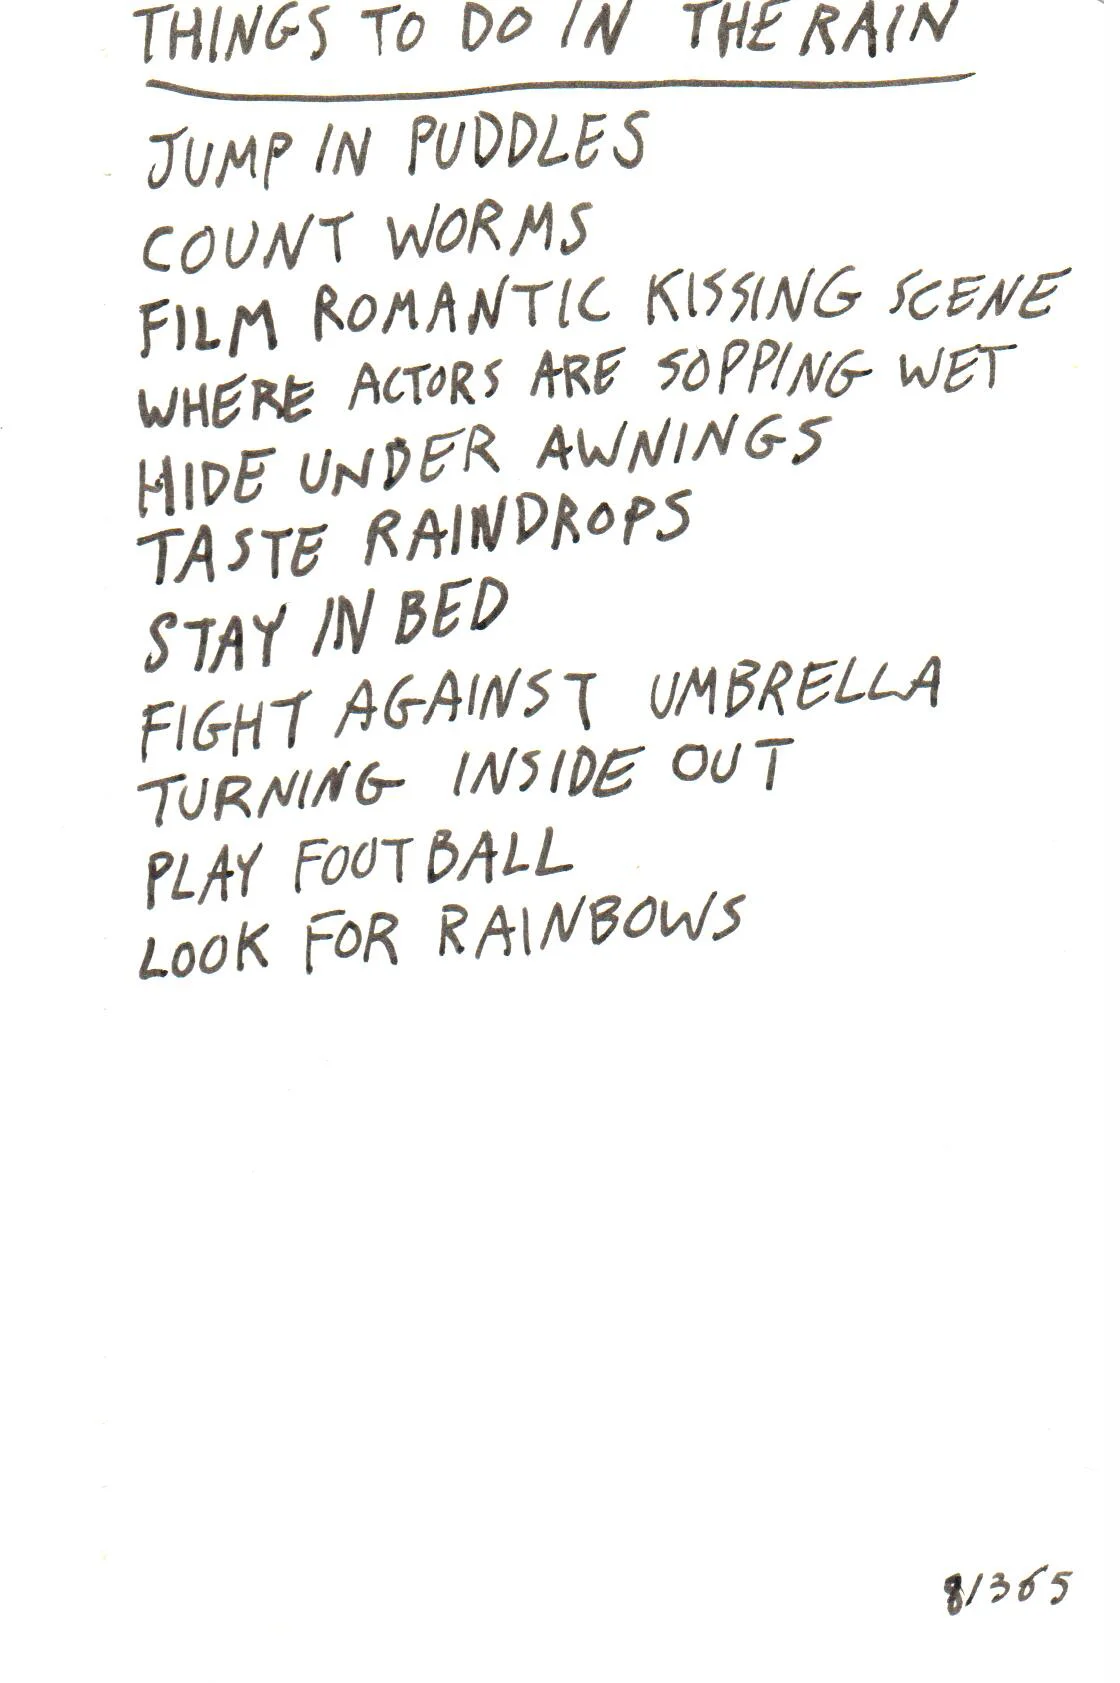 THINGS TO DO IN THE RAIN
JUMP IN PUDDLES
COUNT WORMS
FILM ROMANTIC KISSING SCENE
WHERE ACTORS ARE SOPPING WET
HIDE UNDER AWNINGS
TASTE RAINDROPS
STAY IN BED
FIGHT AGAINST UMBRELLA
TURNING INSIDE OUT
PLAY FOOTBALL
LOOK FOR RAINBOWS
8/365